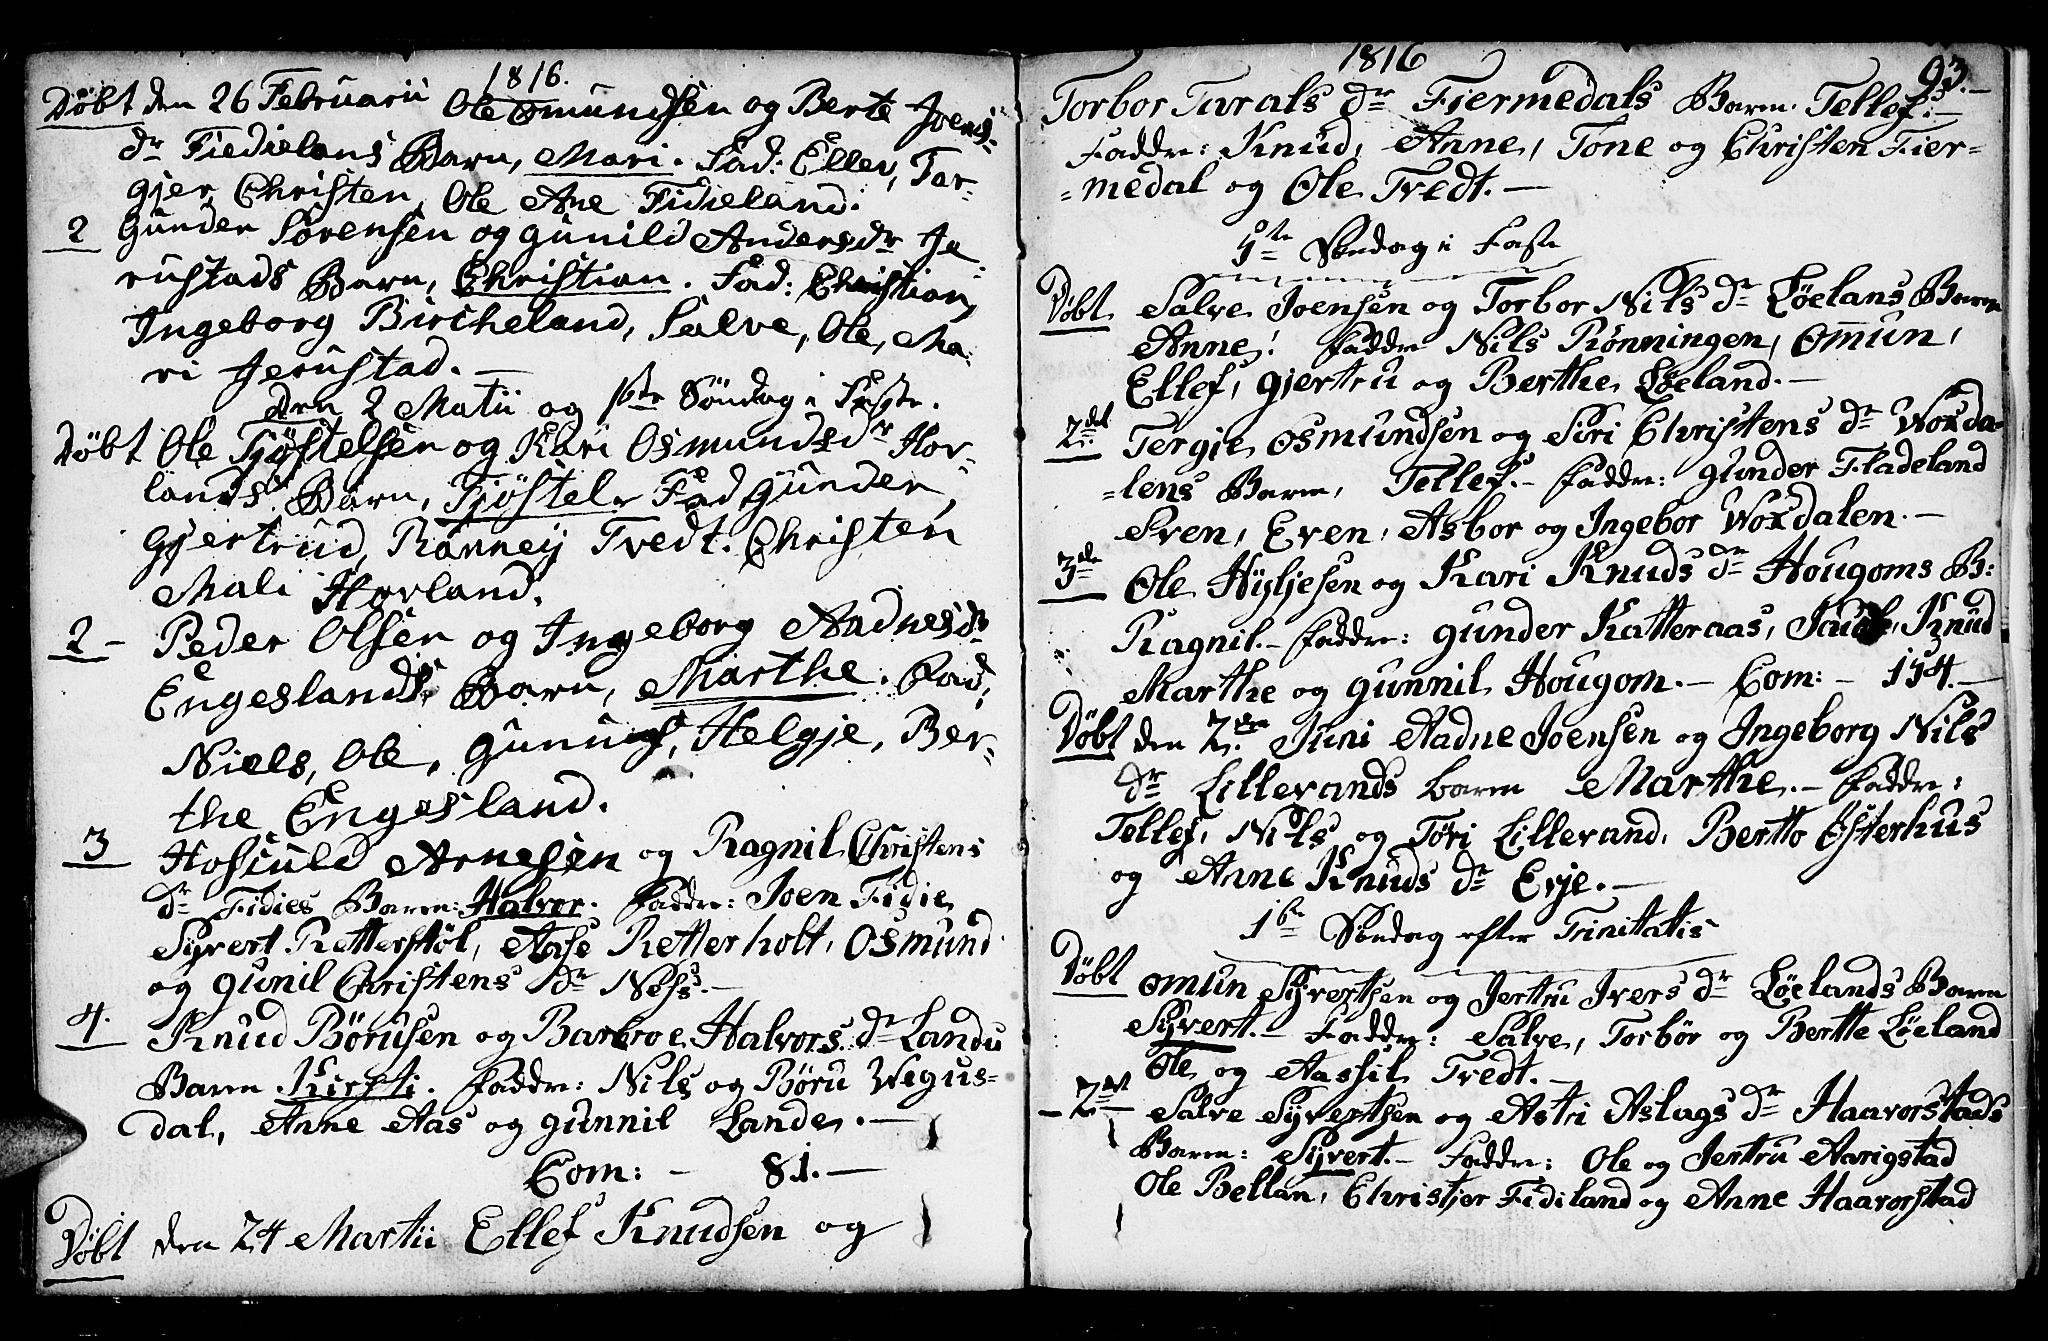 1816.
Døbt den 26 Februarii Ole Omundsen og Berte Joens
dr Fiedielans Barn, Mari. Fad: Ellev, Tar-
gjer, Christen, Ole Ane Fidieland.
2 Gunder Sørensen og Gunild Andersdr Je-
rustads Barn, Christian. Fad: Christian,
Ingeborg Bircheland, Salve, Ole, Ma-
ri Jerustad.—
den 2 Matii og 1ste Søndag i Faste.
Døbt Ole Tjøstelsen og Kari Osmundsdr Hor-
lands Barn, Tjøstel. Fad Gunder,
Gjertrud, Rønney Tvedt. Christen
Mali Horland.
2 – Peder Olsen og Ingeborg Aadnesdr
Engeslands Barn, Marthe. Fad:
Niels, Ole, Helgje, Ber-
the Engesland.
3 Hoscule Arnesen og Ragnil Christens
dr Fidies Barn: Halvor. Faddre: Joen Fidie
Syvert Retterstøl, Aase Retterholt, Osmund
og Gunil Christens dr Ness.—
4. Knud Børusen og Barbroe Halvors dr Landu
Barn. Kirsti. Faddre: Nils og Børu Wegus-
dal, Anne Aas og Gunnil Lande.—
Com: — 81.—
Døbt den 24 Martii Ellef Knudsen og
1816 93.—
Torbor Tarals dr Fiermedals Barn. Tellef.—
Faddre: Knud, Anne, Tone og Christen Fier-
-medal og Ole Tvedt.—
5te Søndag i Faste
Døbt Salve Joensen og Torbor Nils dr Løelans Barn
Anne! Faddre Nils Rønningen, Omun,
Ellef, Gjertru og Berthe Løeland.—
2det Tergie Osmundsen og Siri Christens dr Woxda-
-lens Barn, Tellef.— Faddre: Gunder Fladeland
Sven, Even, Asbor og Ingebor Woxdalen.—
3de Ole Hyljesen og Kari Knuds dr Hougoms B:
Ragnil.— Faddre: Gunder Katteraas, Knud
Marthe og Gunnil Hougom.— Com: — 114.—
Døbt den 2den Juni Aadne Joensen og Ingeborg Nils
dr Lillevands barn Marthe.— Faddre:
Tellef, Nils og Tøri Lillevand, Bertto Østerhus
og Anne Knuds dr Evje.—
1ste Søndag efter Trinitatis
Døbt Omun Syvertsen og Jertru Ivers dr Løelands Barn
Syvert.— Faddre: Salve, Torbør og Bertte Løeland
Ole og Aassil Tvedt.—
2det Salve Syvertsen og Astri Aslags dr Haavorstads
Barn: Syvert.— Faddre: Ole og Jertru Aarigstad
Ole Bellan, Christjer Fidiland og Anne Haavorstad